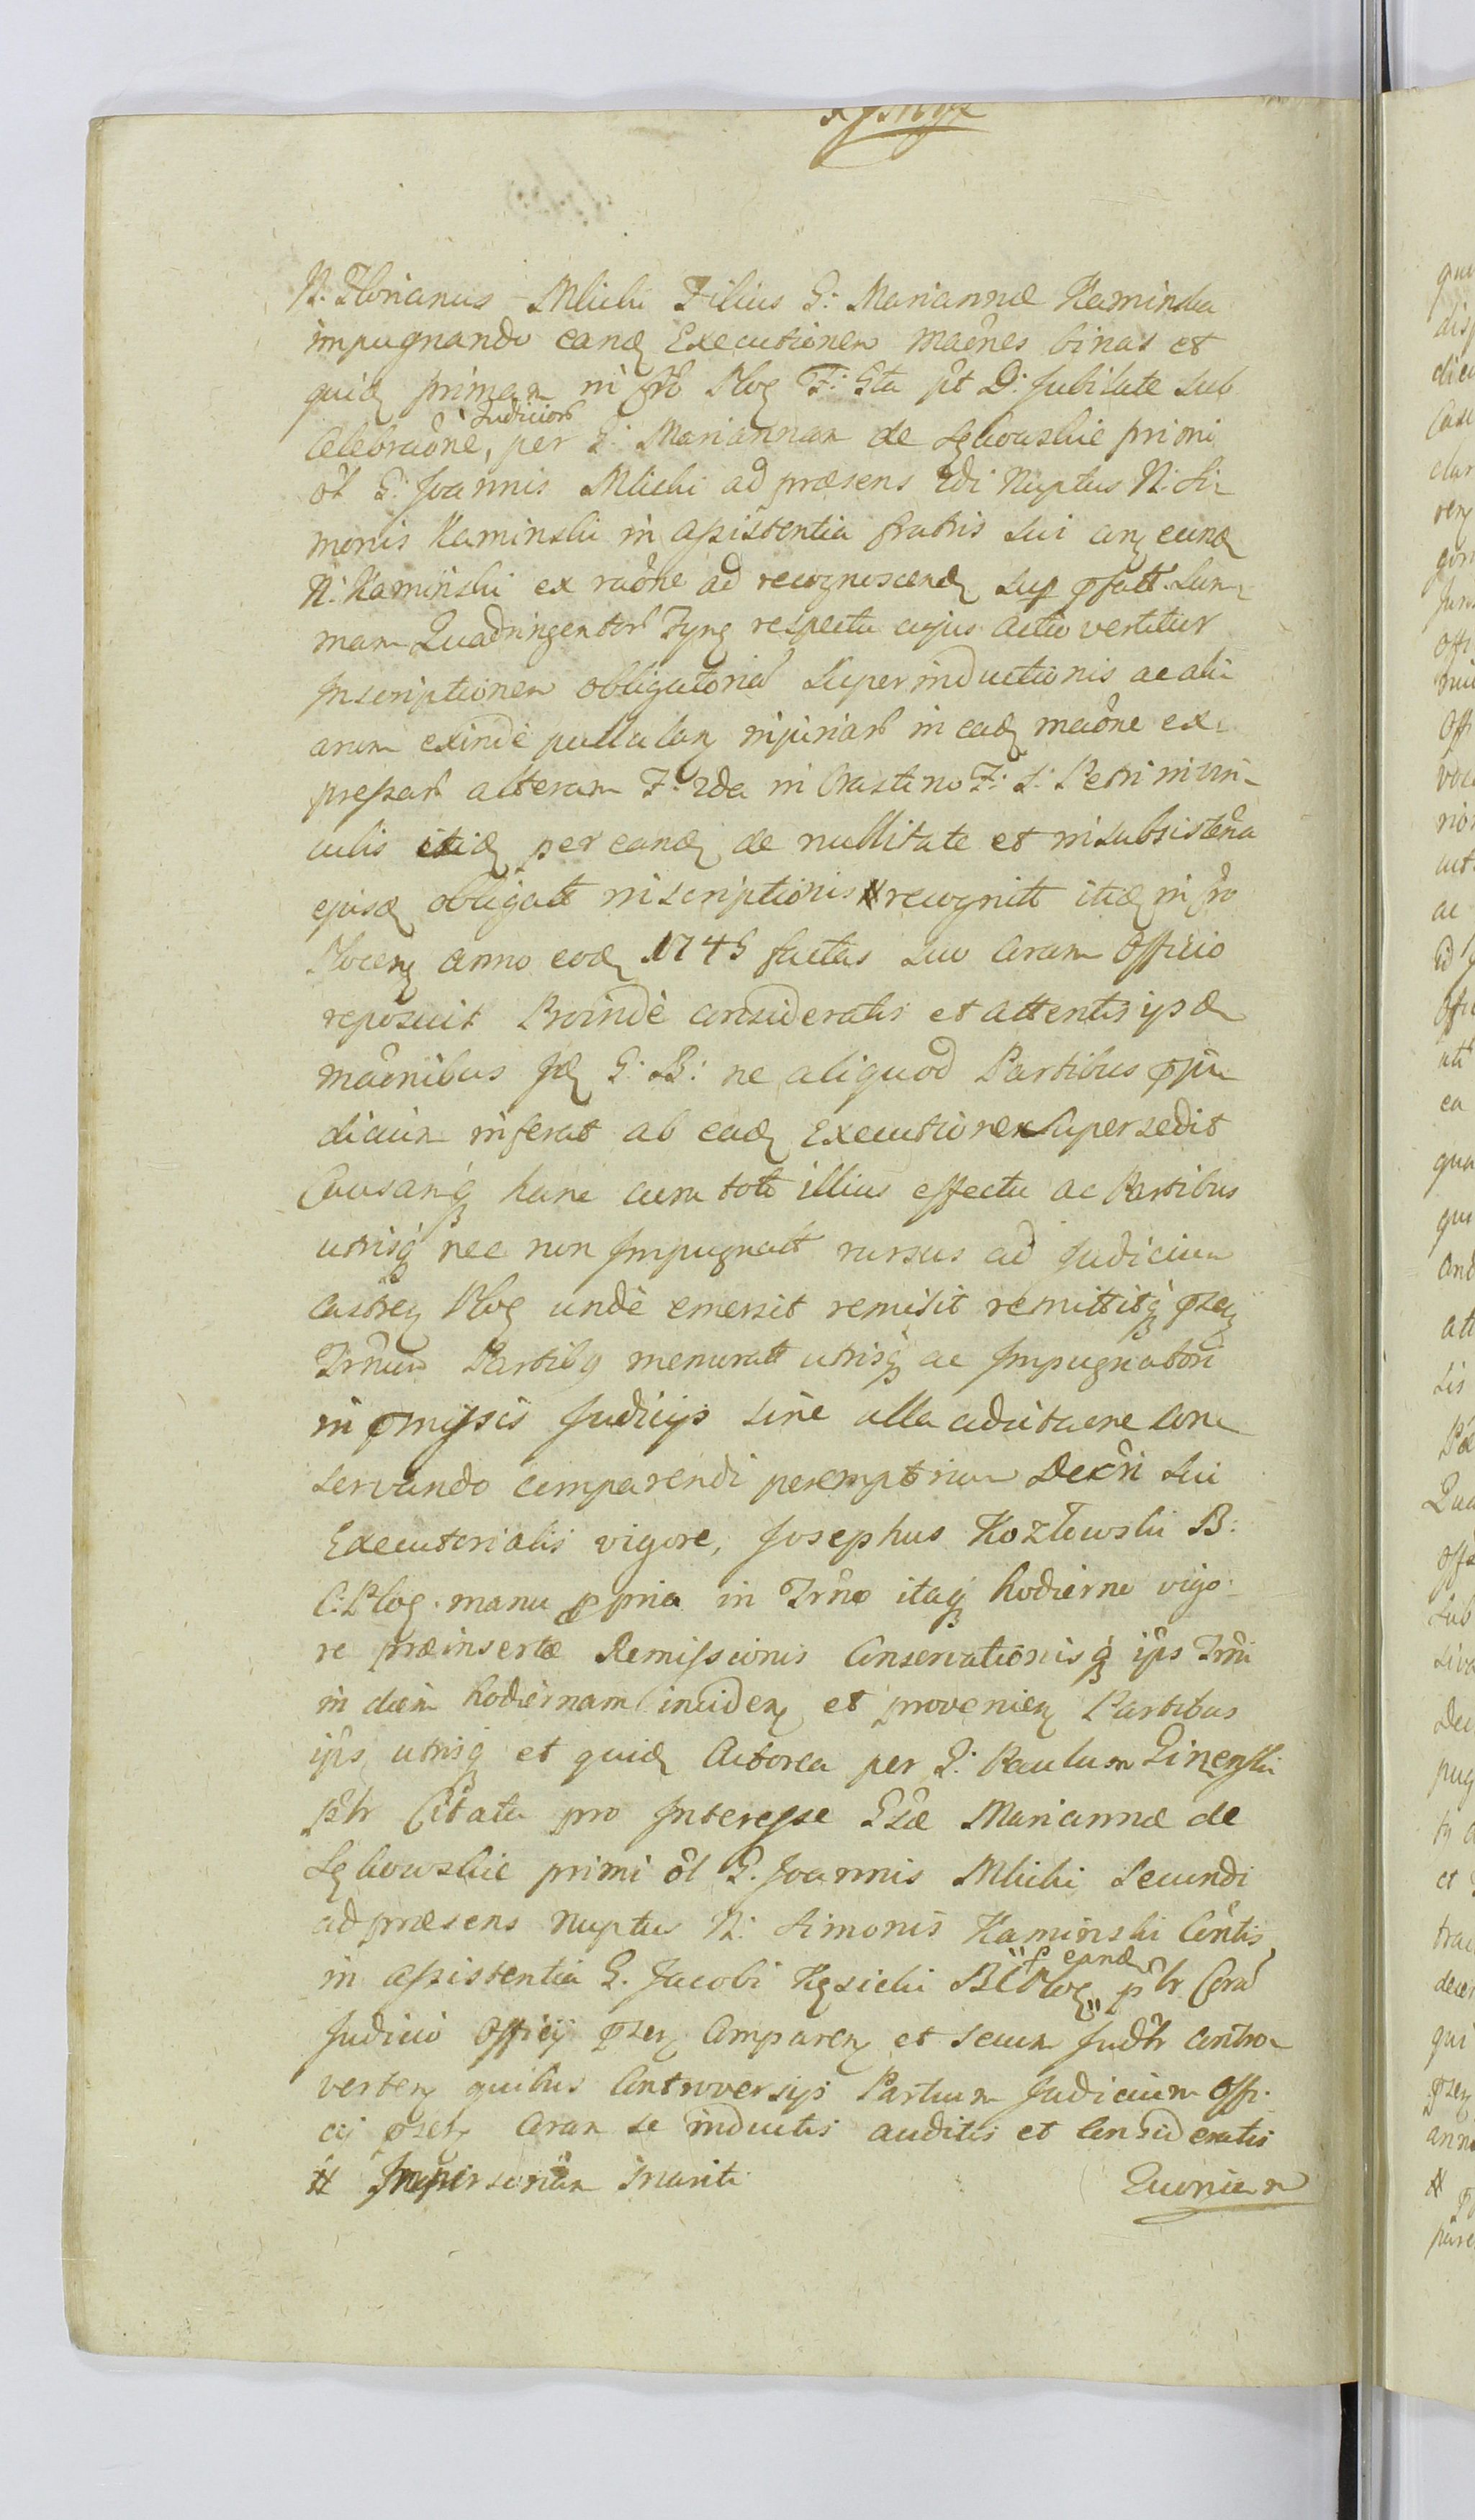 N. Florianus Mlicki Filius G: Mariannæ Kaminska
impugnando eand Executionem maônes binas et
quid primam in Cro Ploc F: 6ta pt D: Jubilate sub
Judicior
Celebraône, per G: Mariannam de Lękowskie primi
ôl G: Joannis Mlicki ad præsens 2di Nuptus N: Si-
monis Kaminski in assistentia fratris sui cum eund
N: Kaminski ex raône ad recognoscend sup pfatt. Sum-
mam Quadringentor Tynf respectu cujus actio vertitur
Inscriptionem obligatoria Superinductionis ac ali
arum exinde pullulan injuriar in ead maône ex-
pressar alteram F: 2da in Crastino F: S: Petri in vin-
culis itid per eand de nullitate et insubsistêna
ejusd obligatt inscriptionis # recognitt itid in Cro
Plocen anno eod 1745 factas suo Coram Officio
reposuit Proinde consideratis et attentis ijsd
maônibus Jd G: B: ne aliquod Partibus pju-
dicium inferat ab ead Executionem Supersedit
Causamq hanc cum toto illius effectu ac Partibus
utrisq nec non Impugnatt rursus ad Judicium
Castren Ploc unde emersit remisit remittitq psen
Trnum Partibq memoratt utrisq ac Impugnatori
in pmissis Judicijs sine ulla aducitaône con
servando comparendi peremptorium Decrti sui
Executorialis vigore, Josephus Kozłowski B:
C: Ploc. manu ppria in Trno itaq hodierno vigo-
re præinsertæ Remissionis Conservationisq ips Trni
in diem hodiernam inciden et provenien Partibus
ips utrisq et quid Actorea per G: Paulum
ptr Citata pro Interesse Gsæ Mariannæ de
Lękowskie primi ôl G. Joannis Mlicki Secundi
ad præsens nuptus N: Simonis Kaminski Côntis
p eund
in assistentia G. Jacobi Kęsicki BC Ploc ptr Cora
Judicio Officij psen Comparen et secum Judtr contro-
verten quibus Controversijs Partium Judicium Offi-
cij psen Coram se inductis auditis et Consideratis
# Mariti